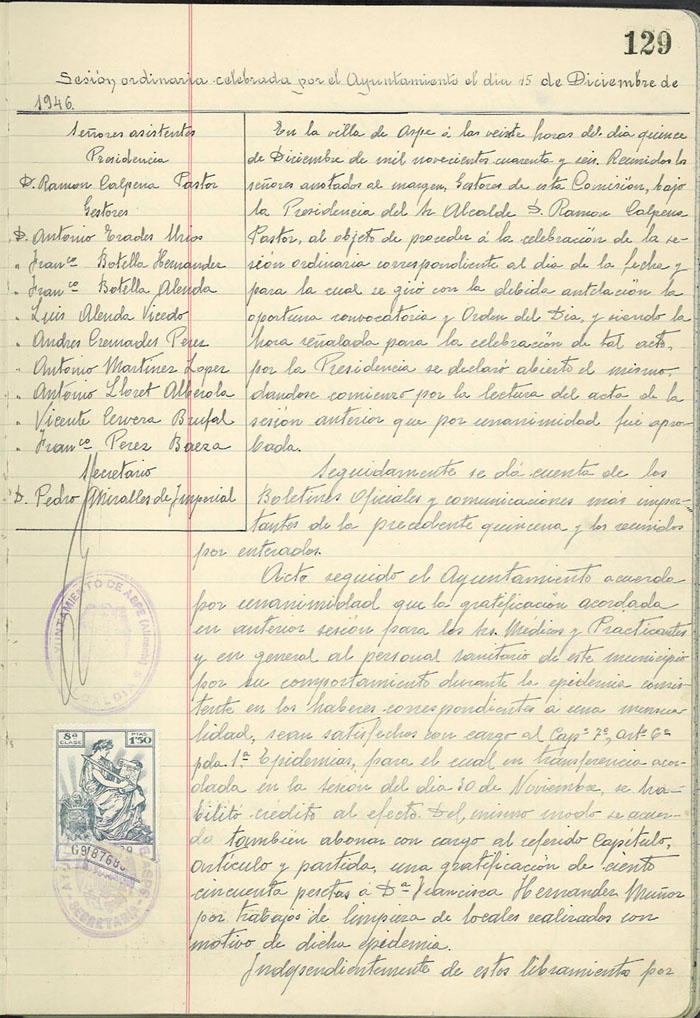 129
Sesión ordinaria celebrada por el Ayuntamiento el dia 15 de Diciembre de
1946.
Señores asistentes
Presidencia
D. Ramon Calpena Pastor
Gestores
D. Antonio Erades Urios
" Franco Botella Hernandez
" Franco Botella Alenda
" Luis Alenda Vicedo
" Andres Cremades Perez
" Antonio Martinez Lopez
" Antonio Lloret Alberola
" Vicente Cervera Brufal
" Franco Perez Baeza
Secretario
D. Pedro Miralles de Imperial
En la villa de Aspe á las veinte horas del dia quince
de Diciembre de mil novecientos cuarenta y seis. Reunidos los
señores anotados al margen, Gestores de esta Comisión, bajo
la Presidencia del Sr Alcalde D. Ramon Calpena
Pastor, al objeto de proceder á la celebración de la se-
sión ordinaria correspondiente al dia de la fecha y
para la cual se giró con la debida antelación la
oportuna convocatoria y Orden del Dia, y siendo la
hora señalada para la celebración de tal acto,
por la Presidencia se declaró abierto el mismo,
dandose comienzo por la lectura del acta de la
sesión anterior que por unanimidad fué apro-
bada.
Seguidamente se dá cuenta de los
Boletines Oficiales y comunicaciones más impor-
tantes de la precedente quincena y los reunidos
por enterados.
Acto seguido el Ayuntamiento acuerda
por unanimidad que la gratificación acordada
en anterior sesión para los Srs. Médicos y Practicantes
y en general al personal sanitario de este municipio
por su comportamiento durante la epidemia consis-
tente en los haberes correspondientes a una mensua-
lidad, sean satisfechos con cargo al Capº 7º, artº 6º
pda. 1ª Epidemias, para el cual en transferencia acor-
dada en la sesión del dia 30 de Noviembre, se ha-
bilitó crédito al efecto. Del mismo modo se acuer-
da también abonar con cargo al referido Capítulo,
artículo y partida, una gratificación de ciento
cincuenta pesetas á Dª Francisca Hernandez Muñoz
por trabajos de limpieza de locales realizados con
motivo de dicha epidemia.
Independientemente de estos libramiento por
AYUNTAMIENTO DE ASPE (Alicante)
ALCALDIA
8ª
CLASE
PTAS.
1'50
SECRETARIA